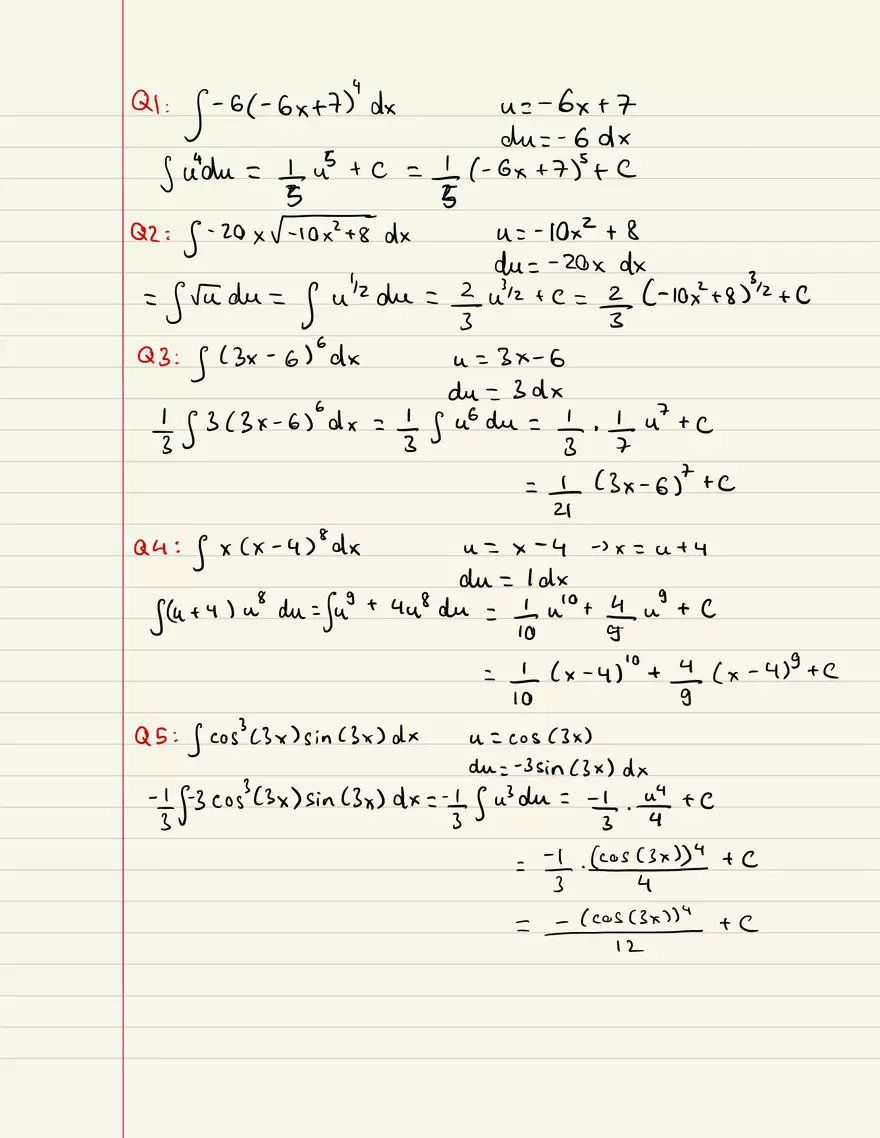 Q1: ∫ -6(-6x+7)⁴ dx u = -6x + 7
du = -6 dx
∫ u⁴du = 1/5 u⁵ + C = 1/5 (-6x + 7)⁵ + C
Q2: ∫ -20x√(-10x²+8) dx u = -10x² + 8
du = -20x dx
= ∫ √u du = ∫ u^(1/2) du = 2/3 u^(3/2) + C = 2/3 (-10x² + 8)^(3/2) + C
Q3: ∫ (3x - 6)⁶ dx u = 3x - 6
du = 3 dx
1/3 ∫ 3(3x - 6)⁶ dx = 1/3 ∫ u⁶ du = 1/3 · 1/7 u⁷ + C
= 1/21 (3x - 6)⁷ + C
Q4: ∫ x(x - 4)⁸ dx u = x - 4 → x = u + 4
du = 1dx
∫(u + 4) u⁸ du = ∫u⁹ + 4u⁸ du = 1/10 u¹⁰ + 4/9 u⁹ + C
= 1/10 (x - 4)¹⁰ + 4/9 (x - 4)⁹ + C
Q5: ∫ cos³(3x) sin(3x) dx u = cos(3x)
du = -3sin(3x) dx
-1/3 ∫ -3 cos³(3x) sin(3x) dx = -1/3 ∫ u³ du = -1/3 · u⁴/4 + C
= -1/3 · (cos(3x))⁴/4 + C
= -(cos(3x))⁴/12 + C